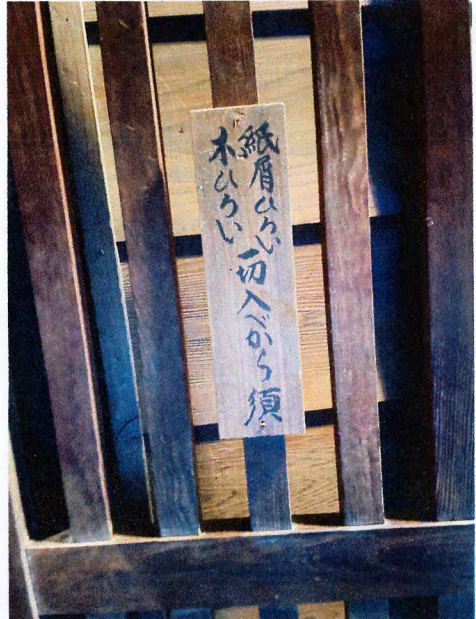 紙屑ひろい
木ひろい
一切入べから須